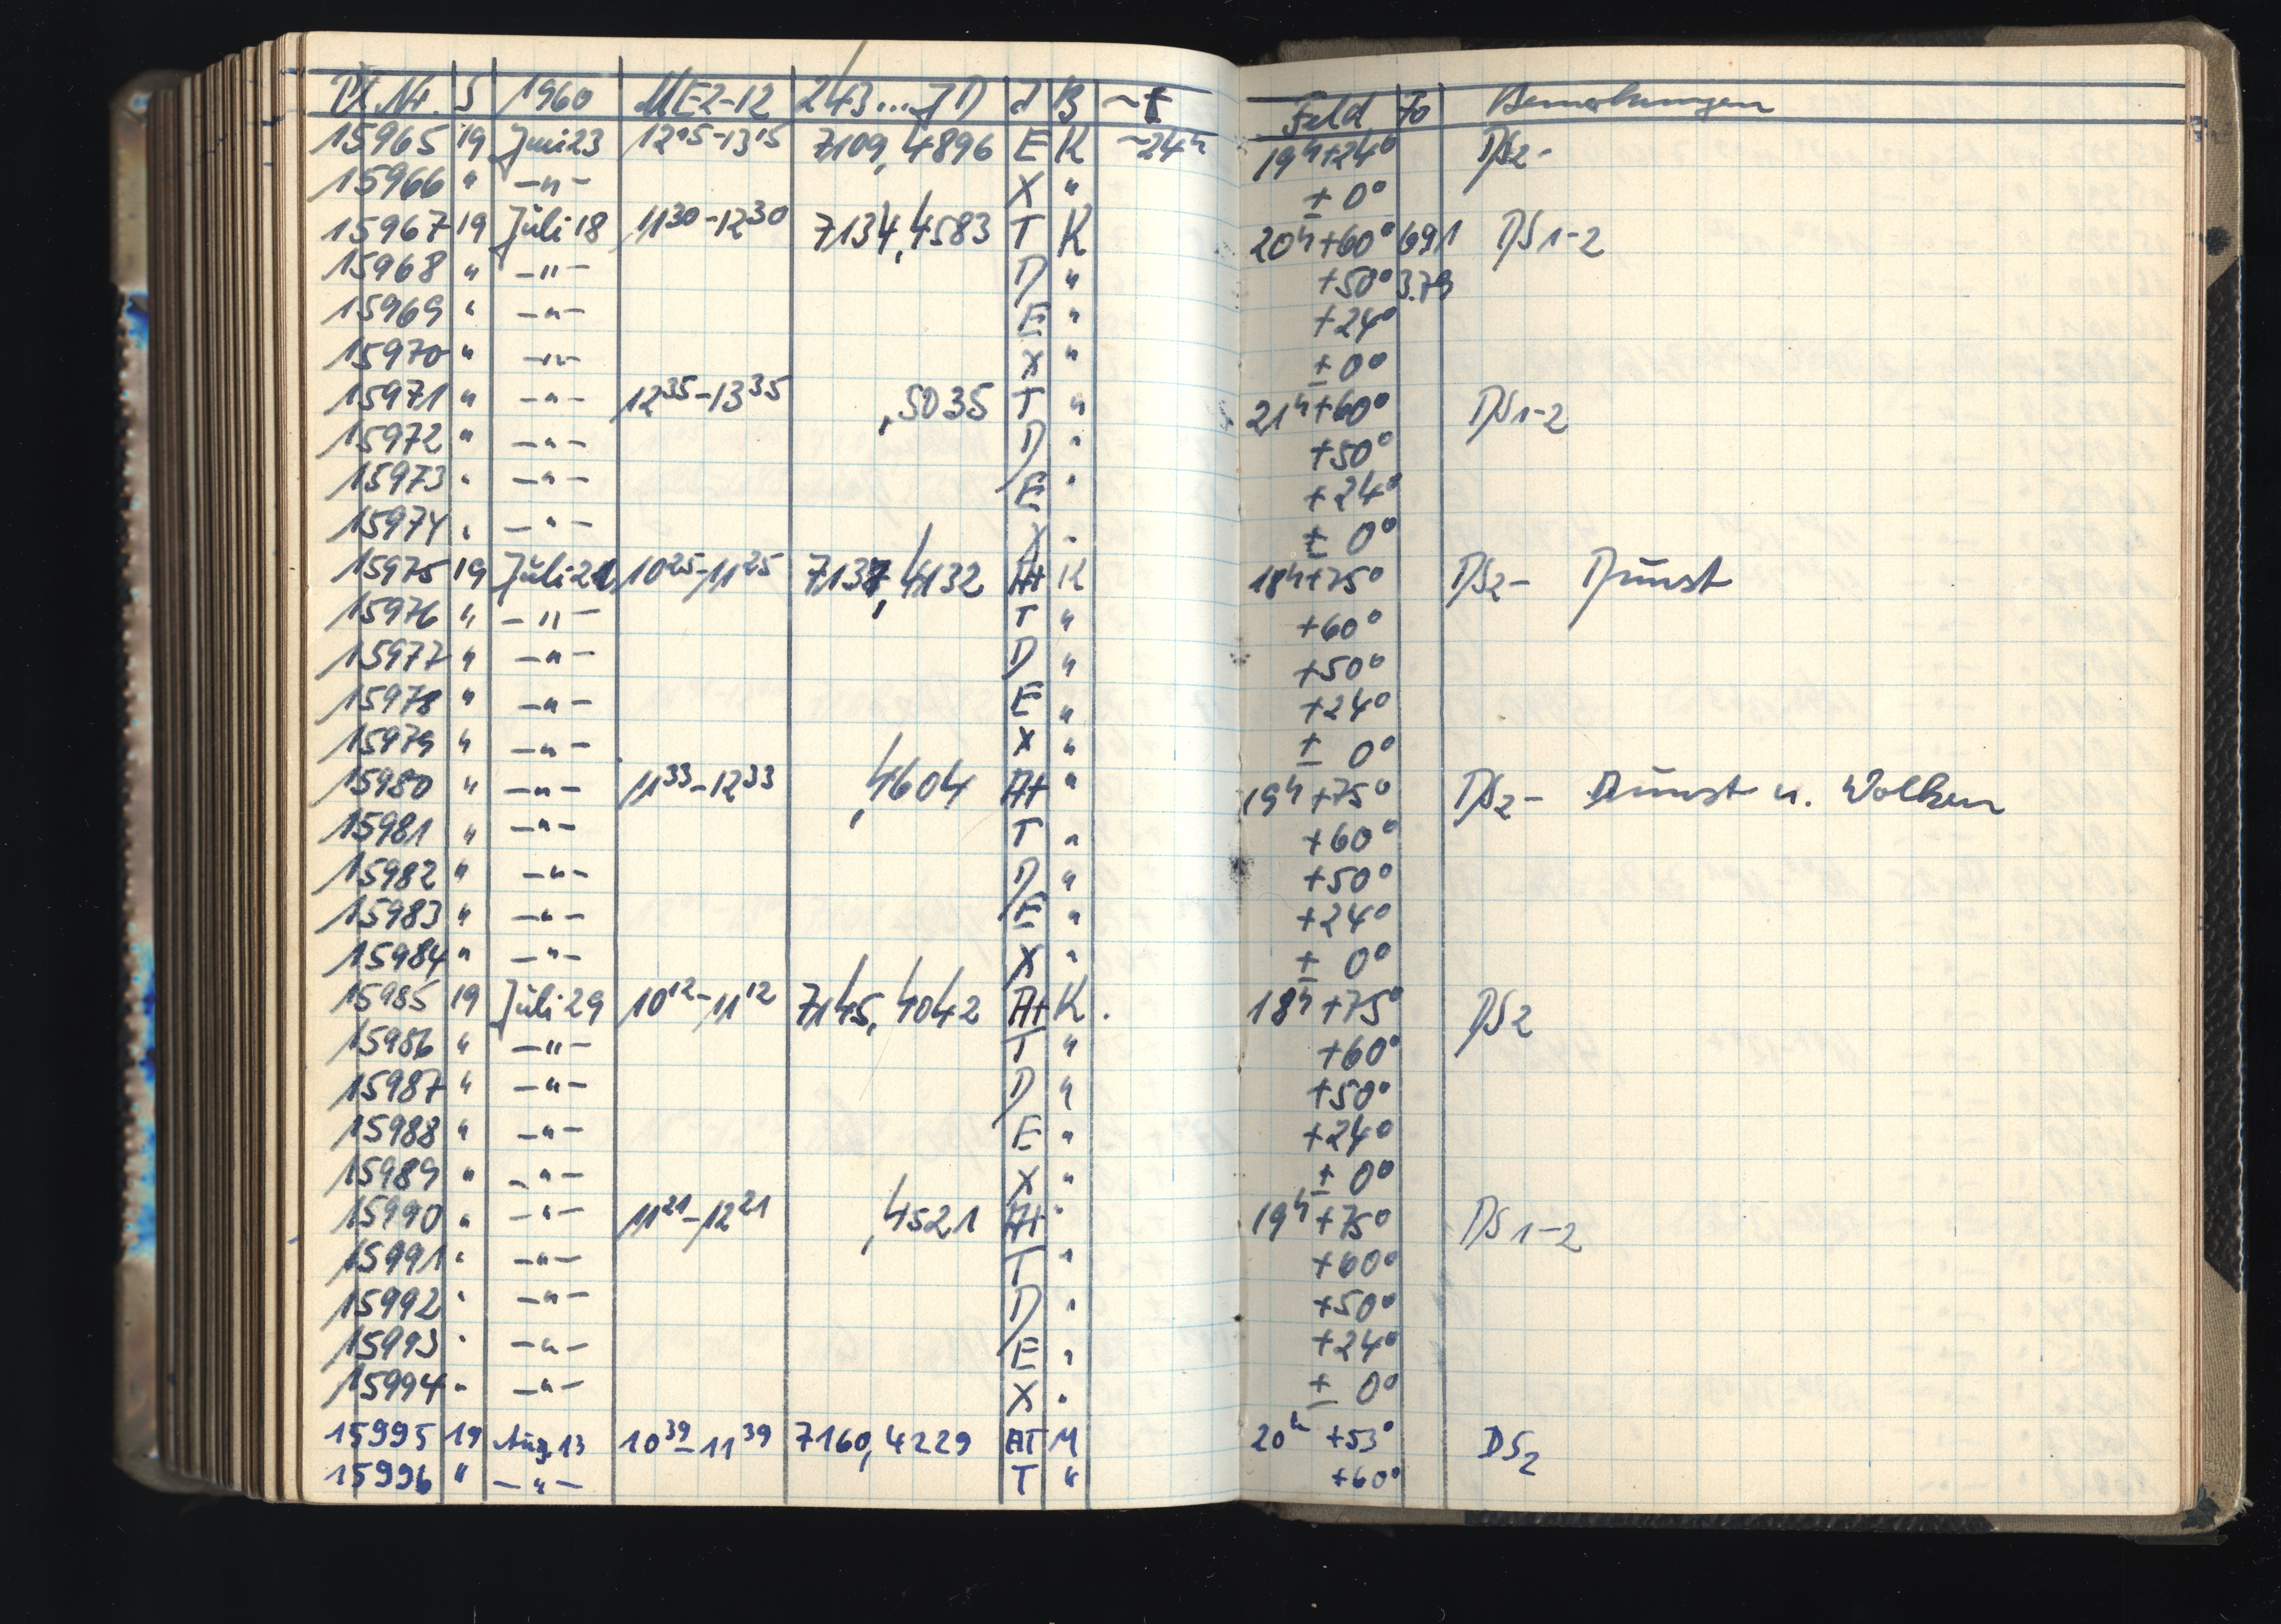 Pl. Nr. S 1960 MEZ-12 243...JD J B ~t Feld Fo Bemerkungen
15965 19 Juni 23 12 05-13 15 7109,4896 E K ~24h 19h+24° DS2-
15966 " -"- X " ± 0°
15967 19 Juli 18 11 30-12 30 7134,4583 T K 20h+60° 691 DS1-2
15968 " -"- D " +50° 3.79
15969 " -"- E " +24°
15970 " -"- X " ± 0°
15971 " -"- 12 35-13 35 ,5035 T " 21h+60° DS1-2
15972 " -"- D " +50°
15973 " -"- E " +24°
15974 " -"- X " ± 0°
15975 19 Juli 21 10 25-11 25 7137,4132 At K 18h+75° DS2- Dunst
15976 " -"- T " +60°
15977 " -"- D " +50°
15978 " -"- E " +24°
15979 " -"- X " ± 0°
15980 " -"- 11 33-12 33 ,4604 At " 19h+75° DS2- Dunst u. Wolken
15981 " -"- T " +60°
15982 " -"- D " +50°
15983 " -"- E " +24°
15984 " -"- X " ± 0°
15985 19 Juli 29 10 12-11 12 7145,4042 At K. 18h+75° DS2
15986 " -"- T " +60°
15987 " -"- D " +50°
15988 " -"- E " +24°
15989 " -"- X " ± 0°
15990 " -"- 11 21-12 21 ,4521 At " 19h+75° DS1-2
15991 " -"- T " +60°
15992 " -"- D " +50°
15993 " -"- E " +24°
15994 " -"- X " ± 0°
15995 19 Aug. 13 10 39-11 39 7160,4229 AT M 20h +53° DS2
15996 " -"- T " +60°